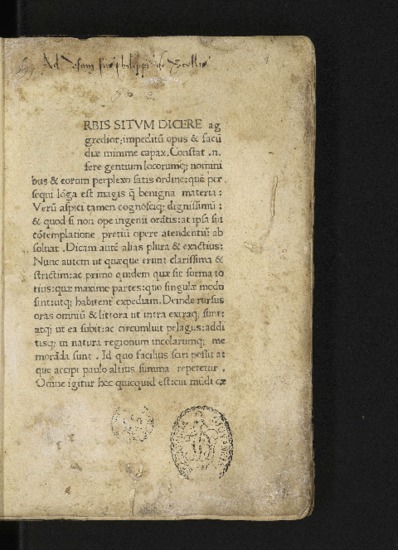 Ad Philippi de
RBIS SITVM DICERE ag
gredior: impeditū opus & facū
diæ minime capax. Constat .n.
fere gentium locorumq; nomini
bus & eorum perplexo satis ordine: quē per
sequi lōga est magis q̃ benigna materia:
Verū aspici tamen cognosciq; dignissimū:
& quod si non ope ingenii oratis: at ipsa sui
cōtemplatione pretiū opere atendentiū ab
soluat. Dicam autē alias plura & exactius:
Nunc autem ut quæque erunt clarissima &
strictim: ac primo quidem quæ sit forma to
tius: quæ maxime partes: quo singulæ modo
sint: utq; habitent expediam. Deinde rursus
oras omniū & littora ut intra extraq; sunt:
atq; ut ea subit: ac circumluit pelagus: addi
tisq; in natura regionum incolarumq; me
morāda sunt. Id quo facilius sciri possit at
que accipi paulo altius summa repetetur.
Omne igitur hoc quicquid est: cui mūdi cæ